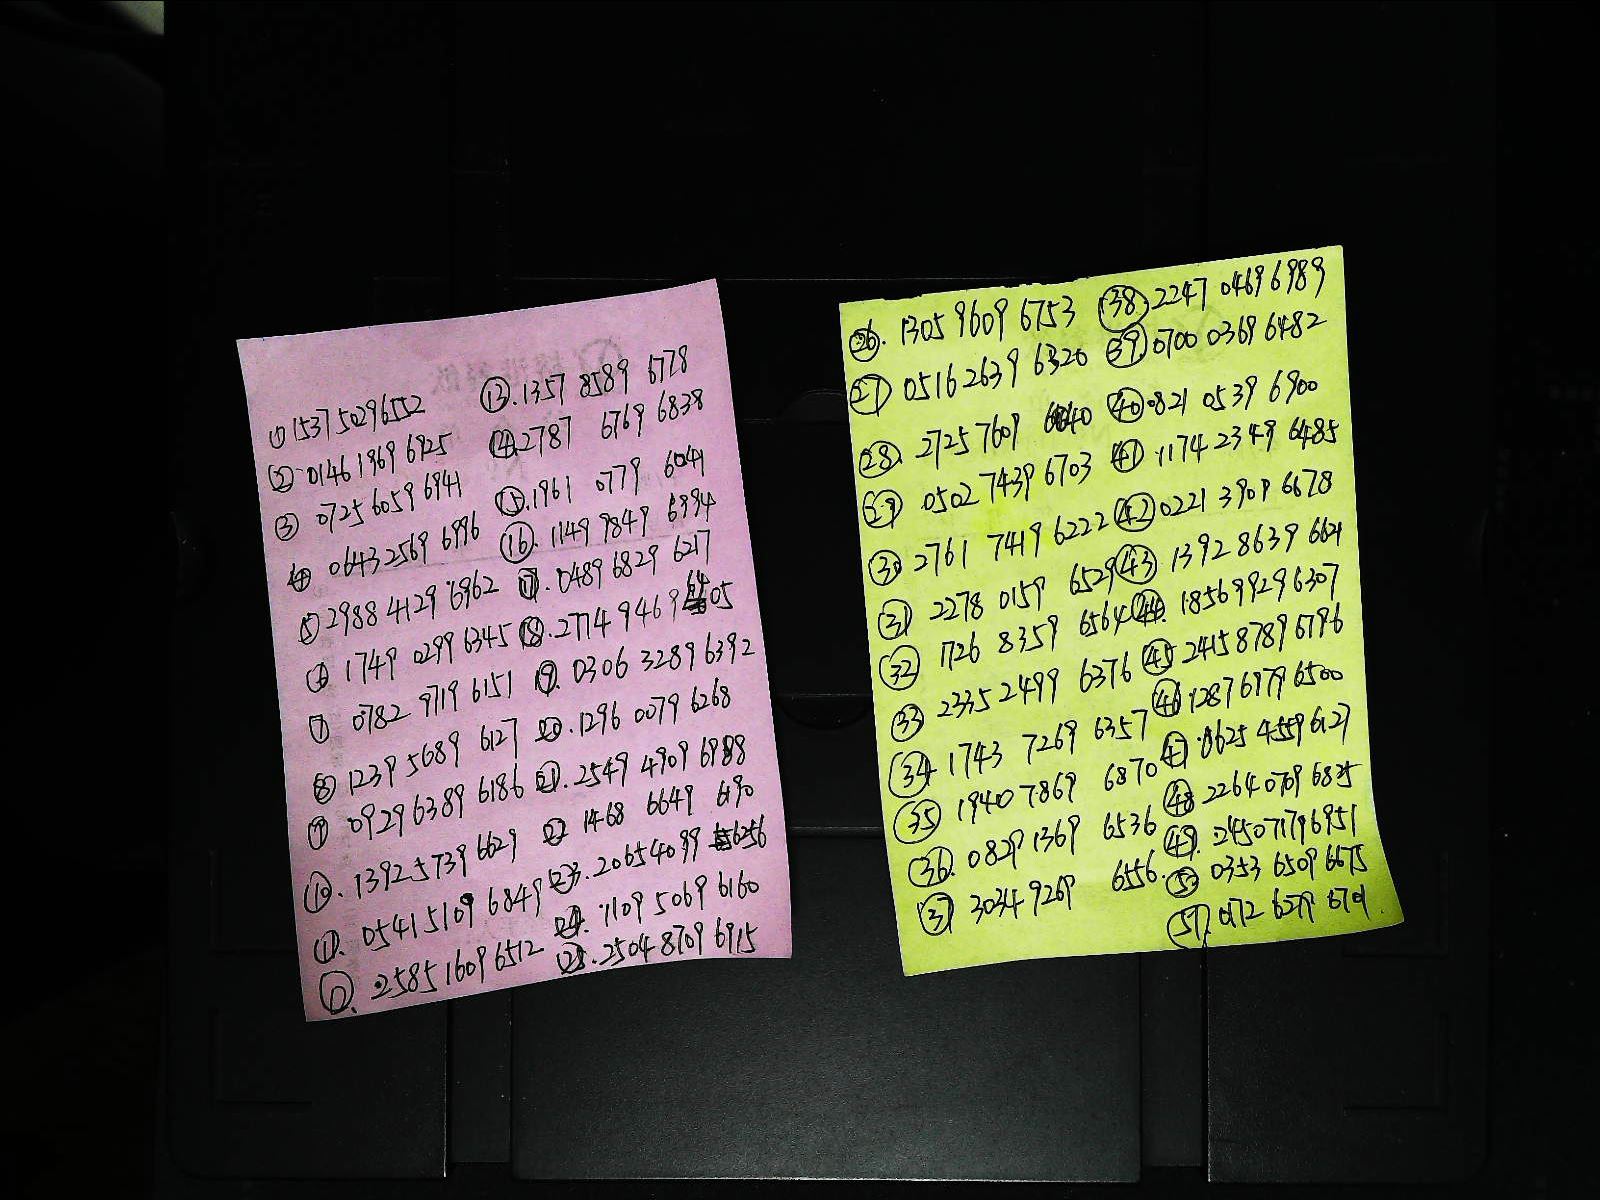 ① 1537 5029 6552
② 0146 1969 6925
③ 0725 6059 6941
④ 0643 2569 6996
⑤ 2988 4129 6962
⑥ 1749 0299 6345
⑦ 0782 9719 6151
⑧ 1239 5689 6127
⑨ 0929 6389 6186
⑩. 1392 5739 6629
⑪. 0541 5109 6849
⑫. 2585 1609 6512
⑬. 1357 8589 6778
⑭. 2787 6769 6838
⑮. 1961 0779 6041
⑯. 1149 9849 6994
⑰. 0489 6829 6217
⑱. 2774 9469 6405
⑲. 0306 3289 6392
⑳. 1296 0079 6268
㉑. 2549 4909 6988
㉒ 1468 6649 6190
㉓. 2065 4099 6256
㉔. 1109 5069 6160
㉕. 2504 8709 6915
㉖. 1305 9609 6753
㉗ 0516 2639 6320
㉘. 2725 7609 6640
㉙. 0502 7439 6703
㉚ 2761 7419 6222
㉛ 2278 0159 6529
㉜ 1726 8359 6564
㉝ 2335 2499 6376
㉞ 1743 7269 6357
㉟ 1940 7869 6870
㊱. 0829 1369 6536
㊲ 3034 9269 6556.
㊳. 2247 0469 6989
㊴. 0700 0369 6482
㊵ 0821 0539 6900
㊶. 1174 2349 6485
㊷ 0221 3909 6678
㊸ 1392 8639 6621
㊹. 1856 9929 6307
㊺ 2415 8789 6796
㊻ 1287 6979 6500
㊼. 0625 4559 6127
㊽ 2264 0709 6835
㊾. 2450 7179 6951
㊿ 0353 6509 6675
(51). 0172 6279 6701